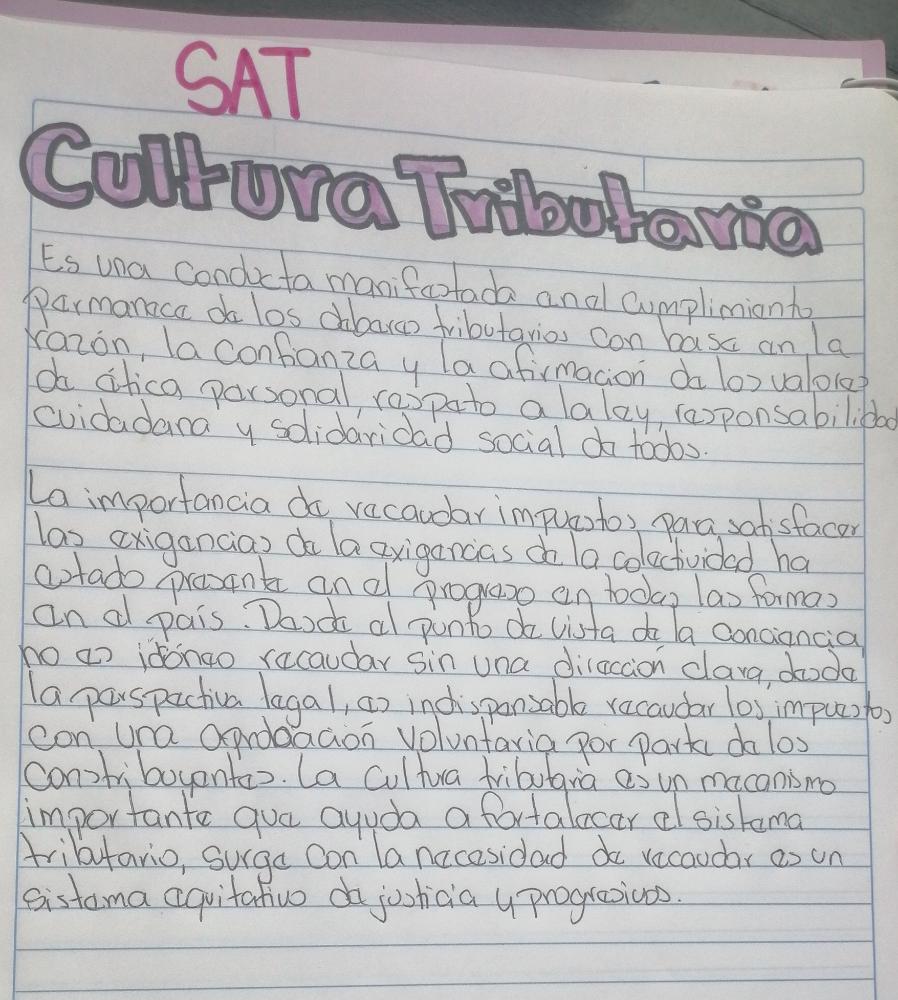 SAT
Cultura Tributaria
Es una conducta manifestada en el cumplimiento
permanece de los deberes tributarios con base en la
razón, la confianza y la afirmación de los valores
de ética personal, respeto a la ley, responsabilidad
cuidadana y solidaridad social de todos.
La importancia de recaudar impuestos para satisfacer
las exigencias de la exigencias de la colectividad ha
estado presente en el progreso en todas las formas
en el país. Desde el punto de vista de la conciencia
no es idóneo recaudar sin una dirección clara, desde
la perspectiva legal, es indispensable recaudar los impuestos
con una aprobación voluntaria por parte de los
constribuyentes. La cultura tributaria es un mecanismo
importante que ayuda a fortalecer el sistema
tributario, surge con la necesidad de recaudar es un
sistema equitativo de justicia y progresivos.